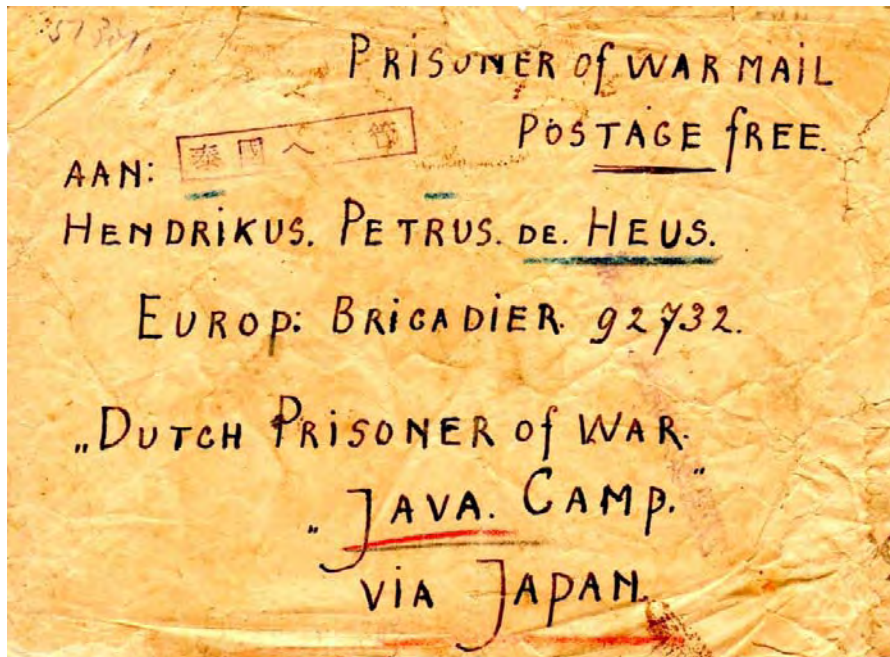 PRISONER of WAR MAIL
POSTAGE fREE.
泰國
AAN:
HENDRIKUS. PETRUS. DE. HEUS.
EUROP: BRIGADIER. 92732.
„DUTCH PRISONER of WAR.
„JAVA. CAMP.”
VIA JAPAN.